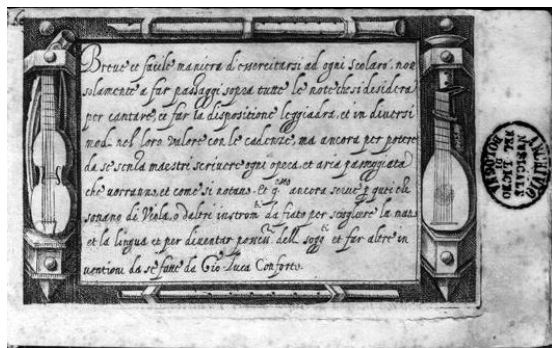 Breve et facile maniera d'essercitarsi ad ogni scolaro. non
solamente a far passaggi sopra tutte le note che si desidera
per cantare, et far la dispositione leggiadra, et in diversi
modi nel loro valore con le cadenze, ma ancora per potere
da se senza maestri scrivere ogni opera, et aria passeggiata
che vorranno, et come si notano. Et q.sto ancora serve p quei che
sonano di Viola, o d'altri instrom.ti da fiato per scioglere la mano
et la lingua et per diventar possess.ri delli sogg.ti et far altre in
ventioni da se fatte da Gio: Luca Conforto.
ARCHIVIO
MUSICALE
NEL LICEO
DI
BOLOGNA